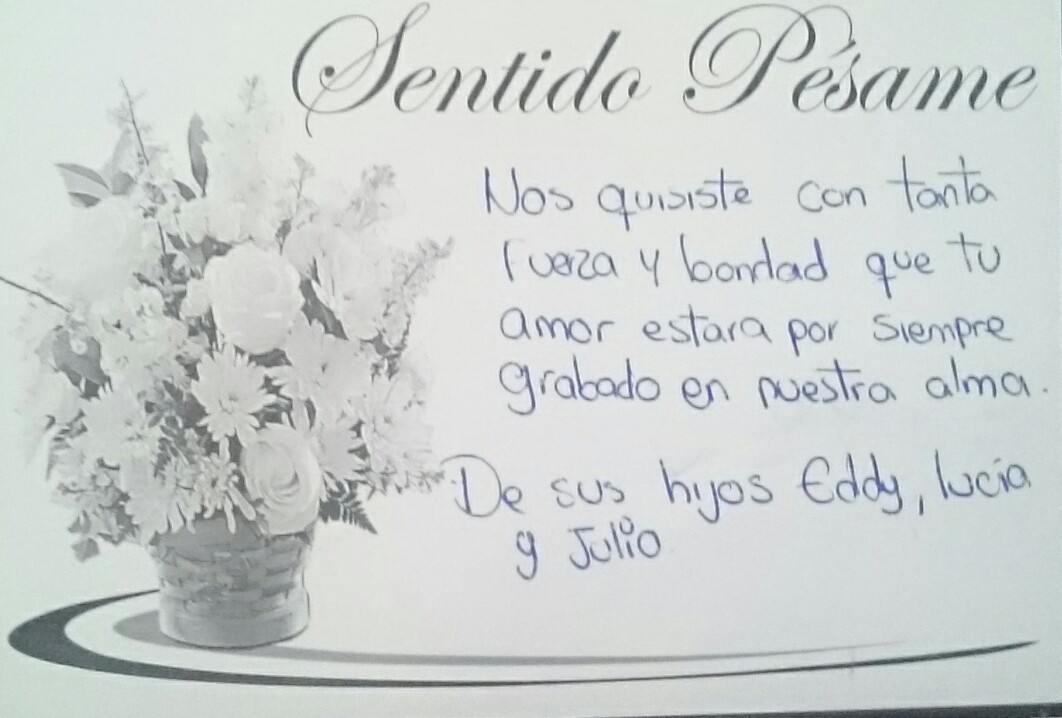 Sentido Pésame
Nos quisiste con tanta
fuerza y bondad que tu
amor estara por siempre
grabado en nuestra alma.
De sus hijos Eddy, lucia
y Julio